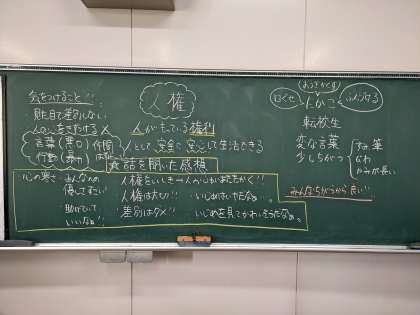 気をつけること!!
・見た目で差別しない
・人の心をきずつける✕
言葉(悪口) 仲間
行動(暴力) はずし
人権
人がもっている権利
人として安全に安心して生活できる
☆話を聞いた感想
・心の寒さ・みんなへの
優しさすごい
・助けていて
いいな!!
・人権をいしき→人が心があたたかく!!
・人権は大切!!
・いじめはいやだな。
・差別はダメ!!
・いじめを見てかわいそうだな。
口ぐせ
たかこ
転校生
変な言葉
少しちがう
筆
なわ
かみが長い
みんなちがうから良い!!